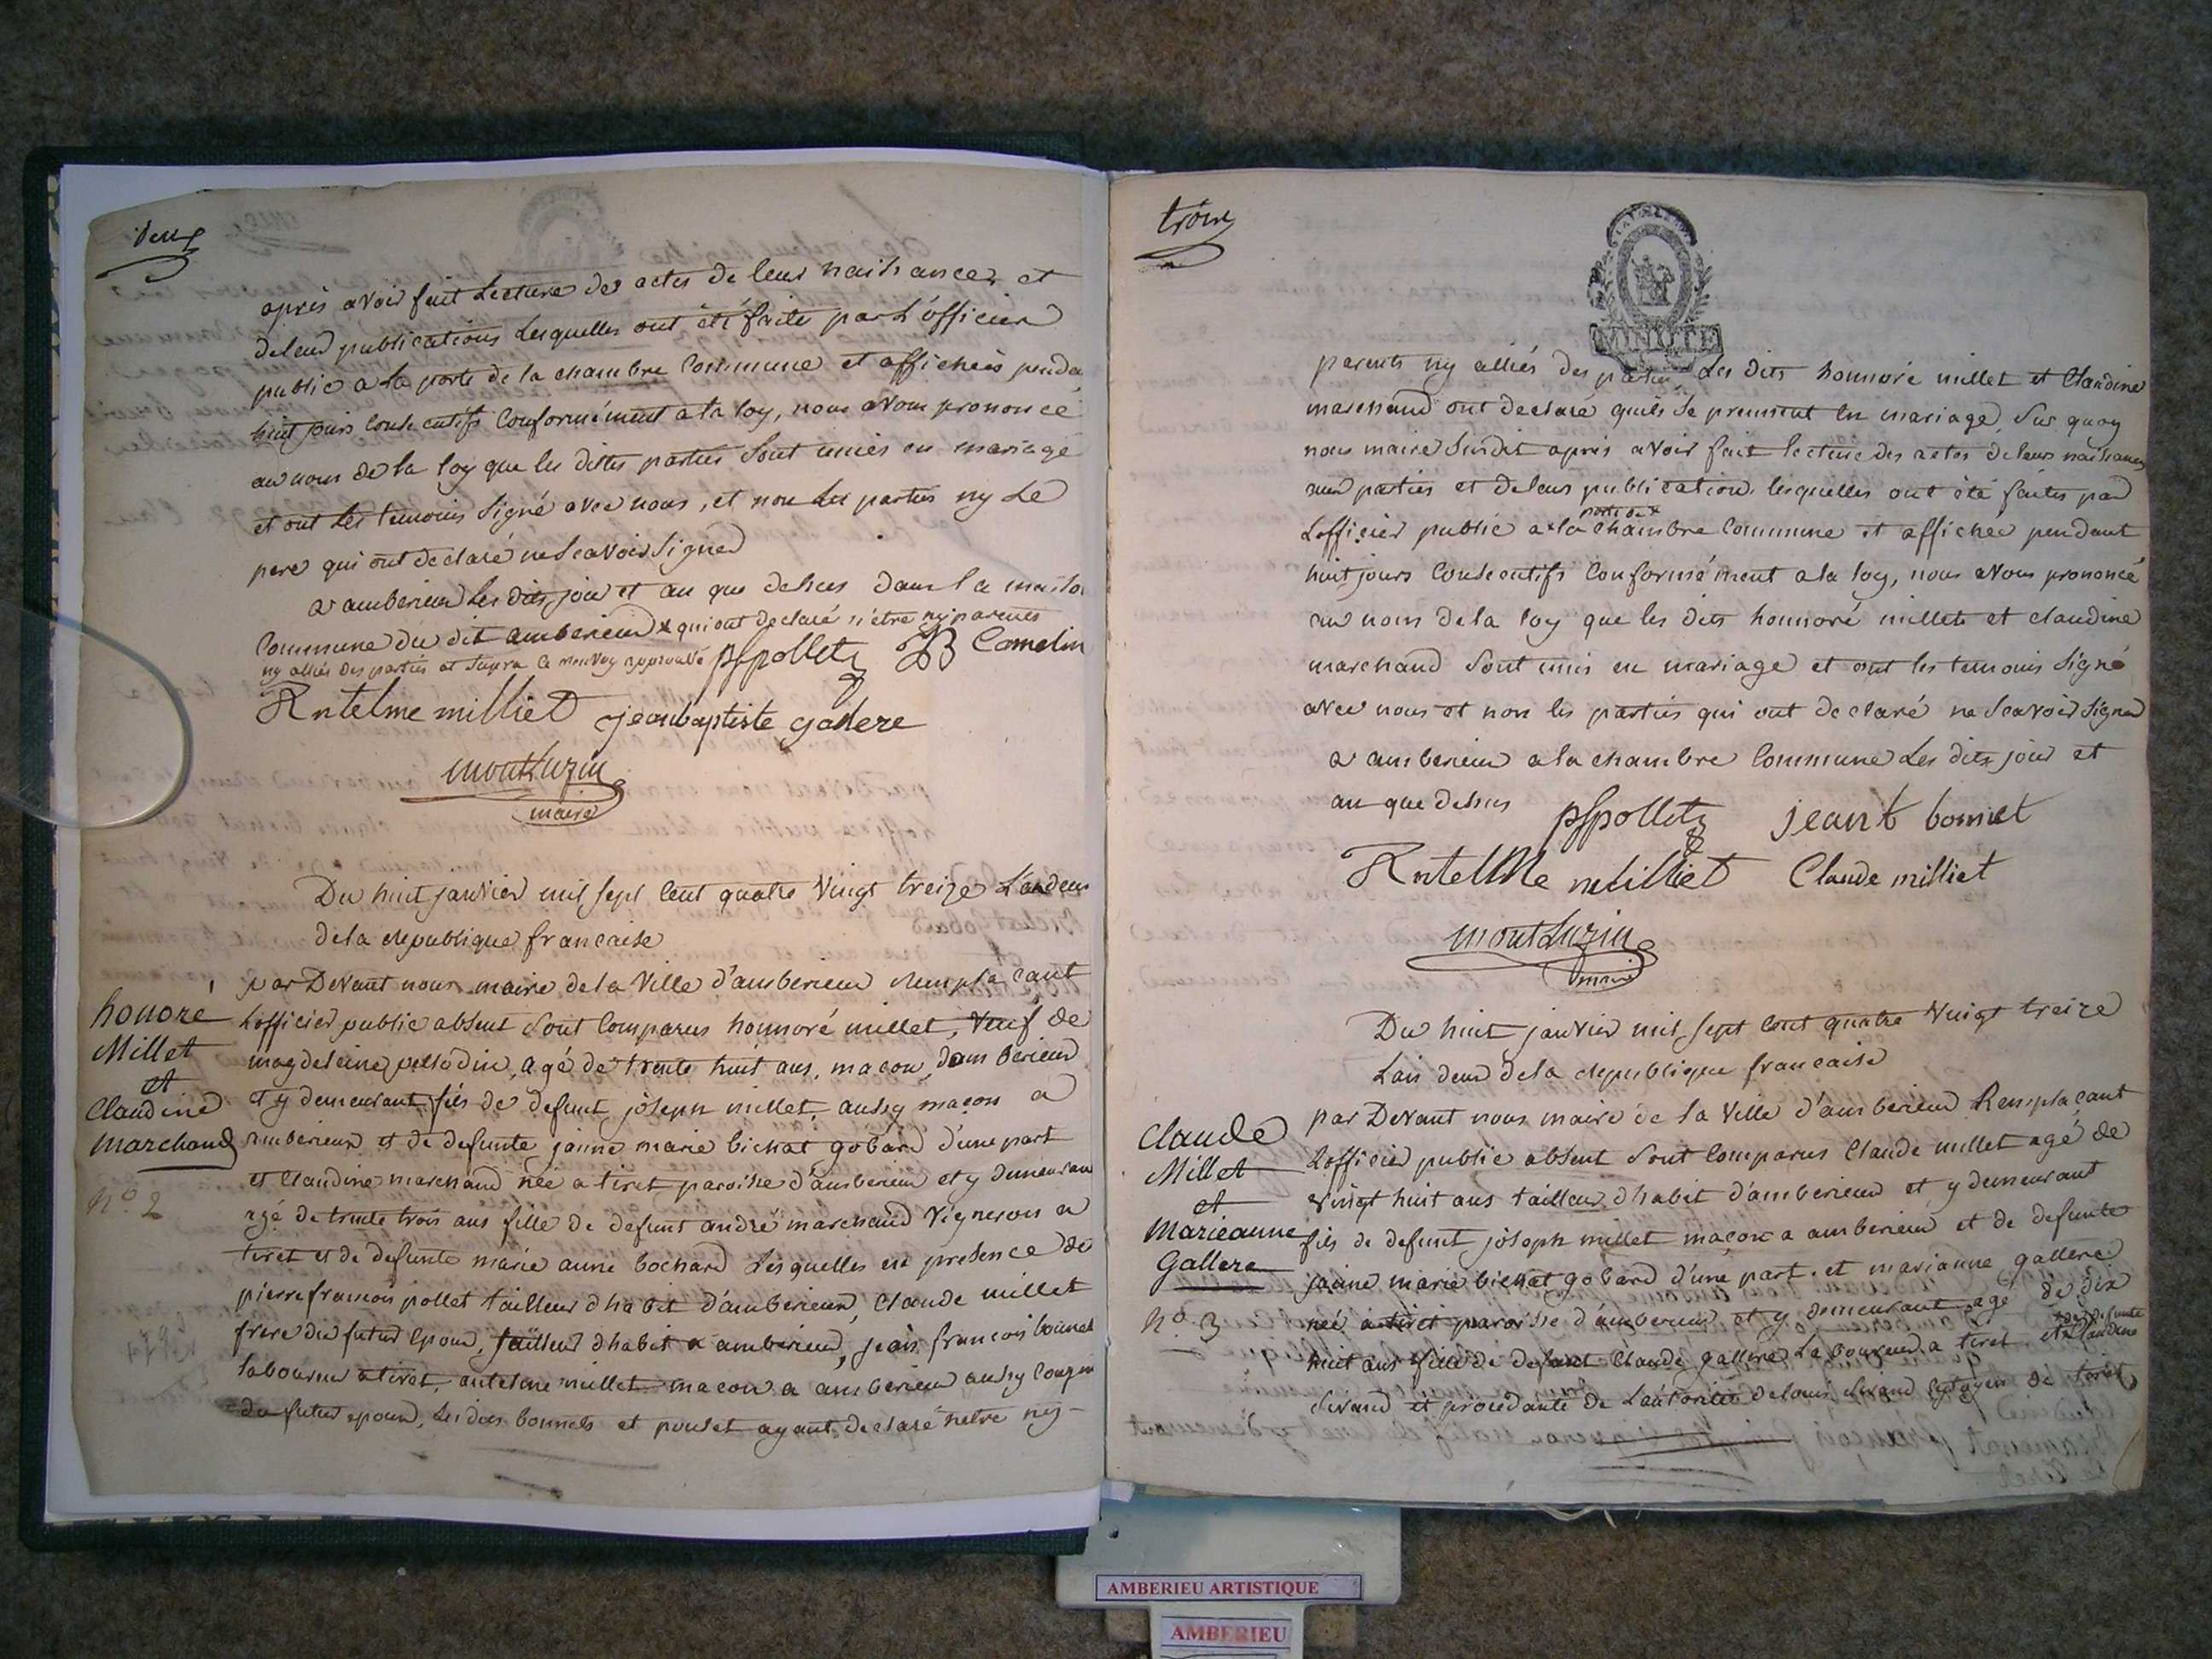 deux
après avoir fait Lecture des actes de leur naissances et
de leur publications Lesquelles ont été faites par L'officier
public a la porte de la chambre Commune et affichées penda
huit jours Consecutifs Conformément a la loy, nous avons prononcé
au nom de la loy que les dittes parties sont unies en mariage
et ont Les temoins Signé avec nous, et non Les parties ny Le
pere qui ont declaré ne Scavoir Signer
a amberieu Les dits jour et an que dessus dans la maison
Commune du dit amberieux x qui ont declaré n'etre ny parents
ny alliés des parties et Supra Ce renvoy approuvé pfpollet JB Camelin
Antelme milliet jeanbaptiste gallere
montluzin
maire
Du huit janvier mil sept Cent quatre Vingt treize L'an deux
de la republique francaise
honoré
Millet
et
Claudine
Marchand
n.o 2
par Devant nous maire de la Ville d'amberieu remplacant
Lofficier public absent Sont Comparus honnoré millet, Veuf de
magdeleine pellodin, agé de trente huit ans, macon, damberieux
et y demeurant fils de defunt joseph millet aussy maçon a
amberieux et de defunte janne marie bichat gobard d'une part
et Claudine marchand née a tiret paroisse d'amberieu et y demeuran
agé de trente trois ans fille de defunt andré marchand Vigneron a
tiret et de defunte marie anne bochard Lesquelles en presence de
pierre francois pollet tailleur dhabit d'amberieux, Claude millet
frere du futur Epoux, tailleur dhabit a amberieux, jean francois bonnet
laboureur a tiret, antelme millet macon a amberieu aussy Cousin
du futur epoux, Les dits bonnets et poulet ayant declaré netre ny
trois
MINUTE
parents ny alliés des parties, Les dits honnoré millet et Claudine
marchand ont declaré quils Se prennent En mariage, Sur quoy
nous maire Susdit après avoir fait lecture des actes de leurs naissances
aux parties et de leurs publications lesquelles ont été faites par
porte de x
Lofficier public a x la chambre Commune et affichée pendant
huit jours Consecutifs Conformément a la loy, nous avons prononcé
au nom de la loy que les dits honnoré millet et claudine
marchand Sont unis en mariage et ont les temoins Signé
avec nous et non les parties qui ont declaré ne Scavoir Signer
a amberieu a la chambre Commune Les dits jour et
an que dessus pfpollet jean f bonnet
Antelme milliet Claude milliet
montluzin
maire
Du huit janvier mil sept Cent quatre Vingt treize
Lan deux de la republique francaise
Claude
Millet
et
Marieanne
Gallere
n.o 3
par Devant nous maire de la Ville d'amberieu Remplaçant
Lofficier public absent Sont Comparus Claude millet agé de
vingt huit ans tailleur dhabit d'amberieu et y demeurant
fils de defunt joseph millet maçon a amberieu et de defunte
janne marie bichat gobard d'une part. et marianne gallere
née a tiret paroisse d'amberieu et y demeurant agé de dix
huit ans fille de defunt Claude gallere Laboureur a tiret et x Claudine
x de defunte
Sirand et procedante de Lautorité de Louis Sirand Cytoyen de tiret
AMBERIEU ARTISTIQUE
AMBERIEU